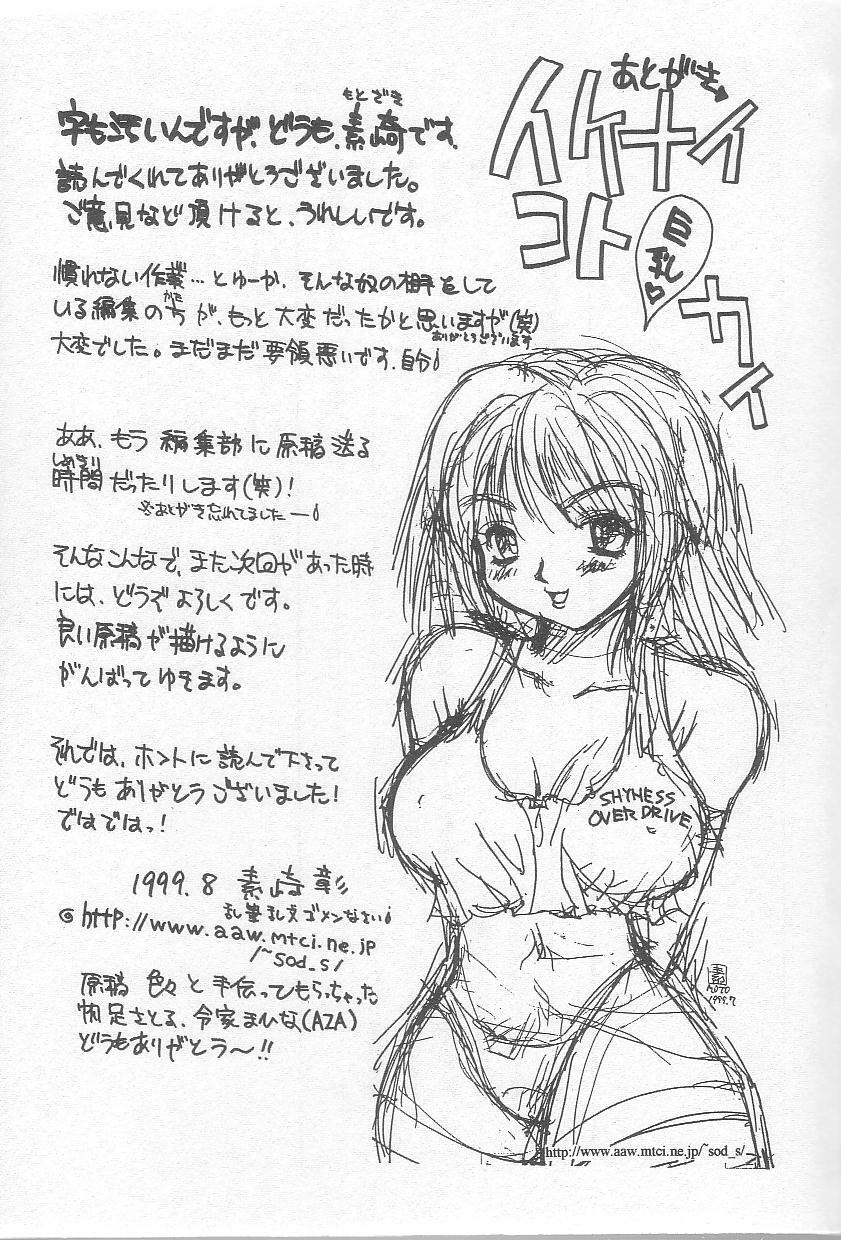 あとがき
イケナイ
コト
巨乳
カイ
もとざき
字も汚いんですが、どうも、素崎です。
読んでくれてありがとうございました。
ご意見など頂けると、うれしいです。
慣れない作業…とゆーか、そんな奴の相手をして
いる編集の方が、もっと大変だったかと思いますが(笑)
かた
ありがとうございます
大変でした。まだまだ要領悪いです、自分
ああ、もう編集部に原稿送る
しめきり
時間だったりします(笑)!
※あとがき忘れてましたー
そんなこんなで、また次回があった時
には、どうぞよろしくです。
良い原稿が描けるように
がんばってゆきます。
それでは、ホントに読んで下さって
どうもありがとうございました!
ではではっ!
1999.8 素崎 彰
乱筆乱文ゴメンなさい
◎http://www.aaw.mtci.ne.jp
/~sod_s/
原稿 色々と手伝ってもらっちゃった
帆足さとる、令家まひな(AZA)
どうもありがとう〜!!
SHYNESS
OVER DRIVE
素
MOTO
1999.7
http://www.aaw.mtci.ne.jp/~sod_s/